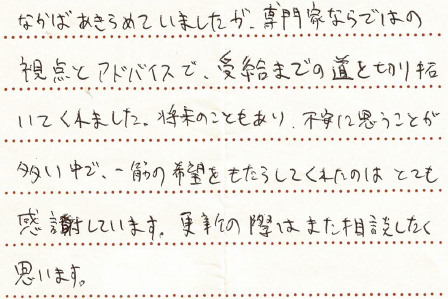 なかばあきらめていましたが、専門家ならではの
視点とアドバイスで、受給までの道を切り拓
いてくれました。将来のこともあり、不安に思うことが
多い中で、一筋の希望をもたらしてくれたのは とても
感謝しています。更新の際はまた相談したく
思います。